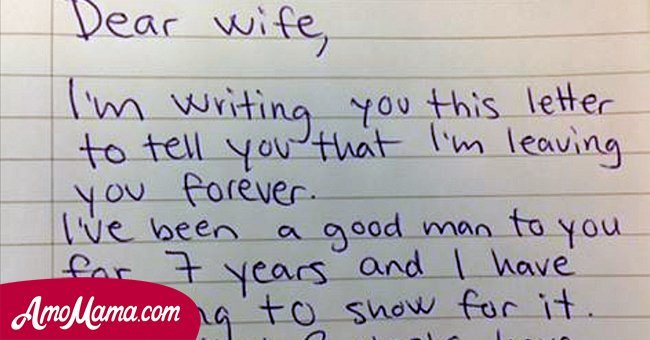 Dear Wife,
I'm writing you this letter
to tell you that I'm leaving
you forever.
I've been a good man to you
for 7 years and I have
to show for it.
AmoMama.com